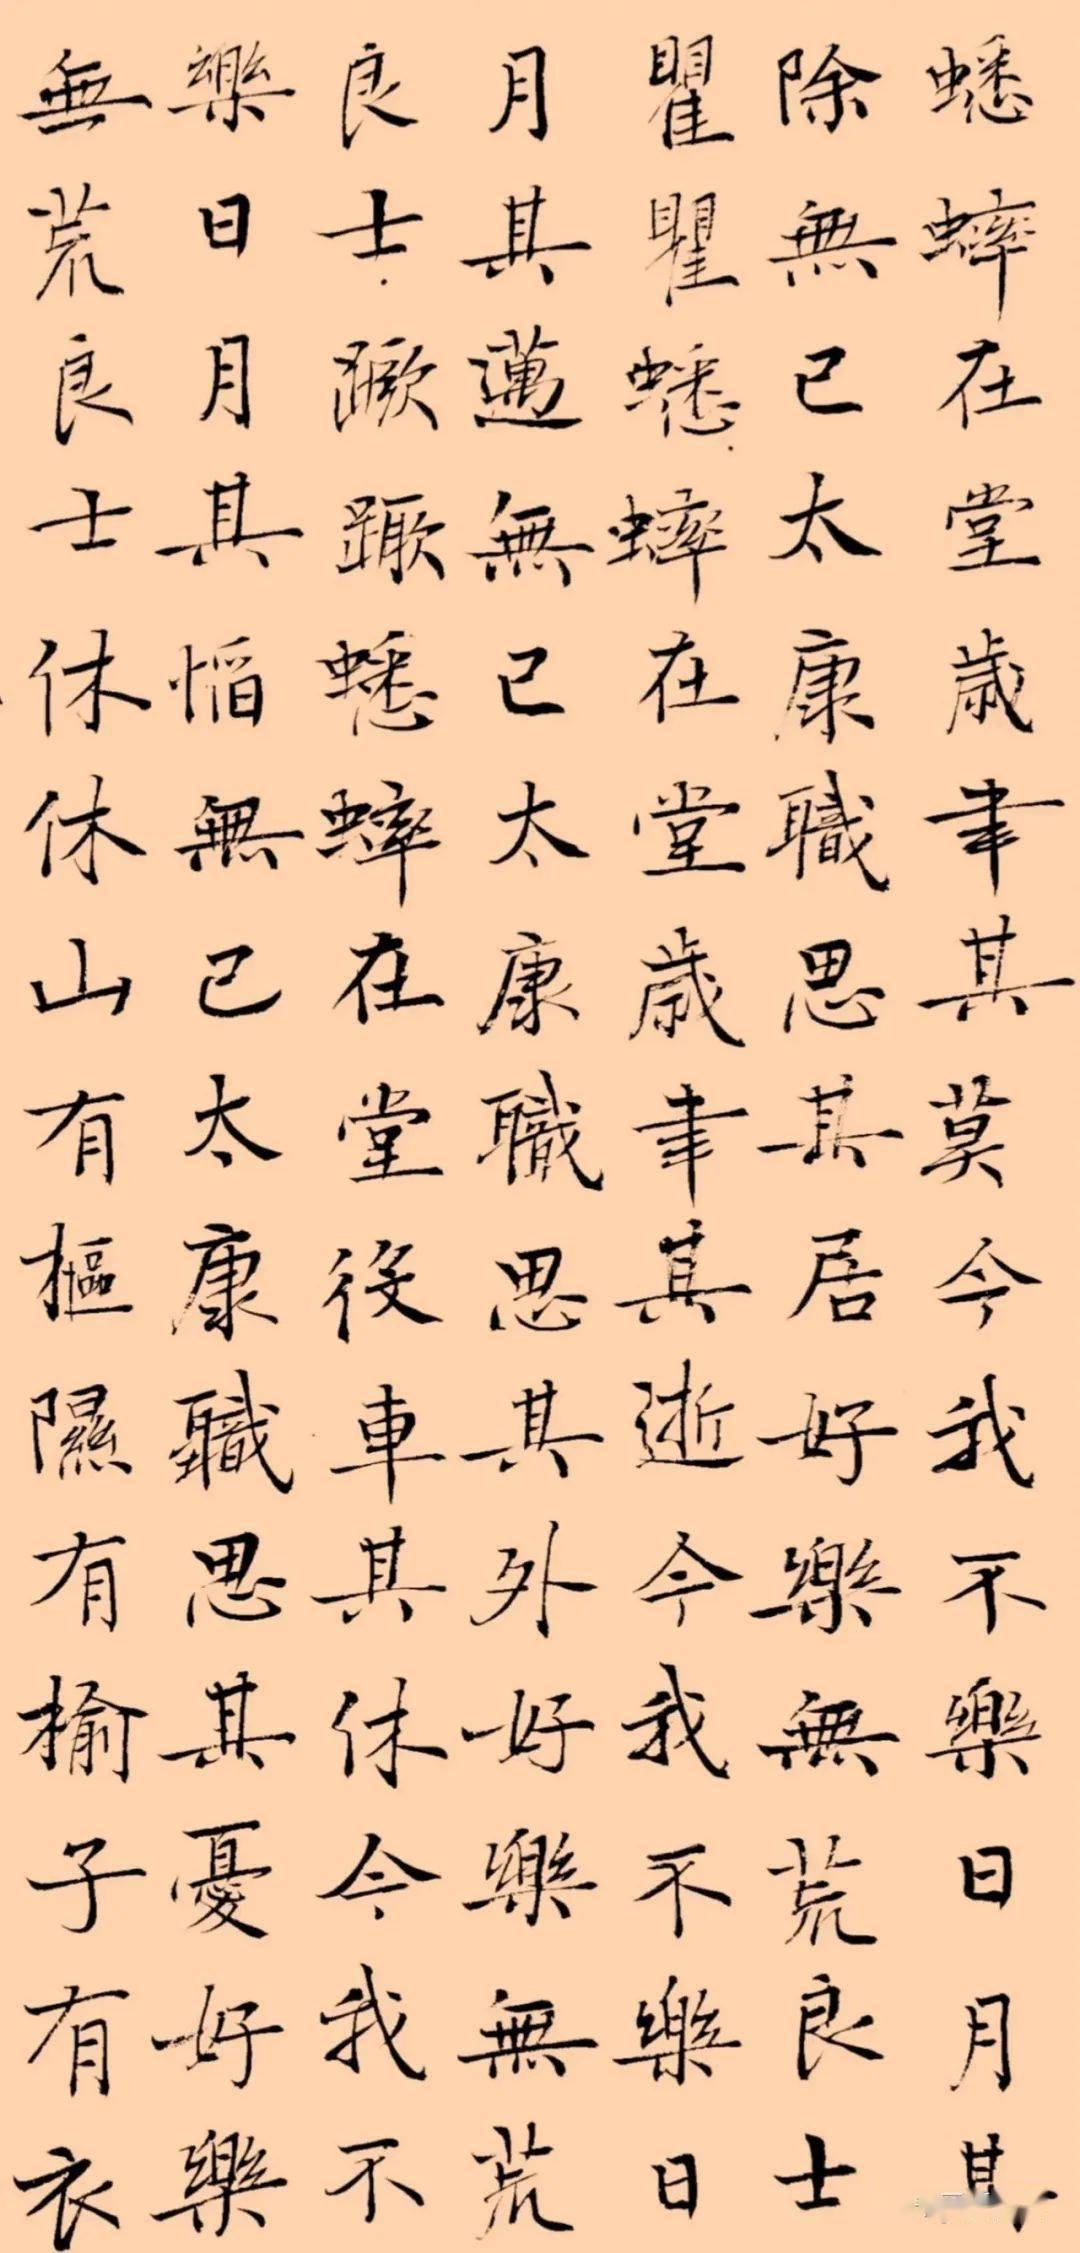 蟋蟀在堂歲聿其莫今我不樂日月其
除無已太康職思其居好樂無荒良士
瞿瞿蟋蟀在堂歲聿其逝今我不樂日
月其邁無已太康職思其外好樂無荒
良士蹶蹶蟋蟀在堂役車其休今我不
樂日月其慆無已太康職思其憂好樂
無荒良士休休山有樞隰有榆子有衣